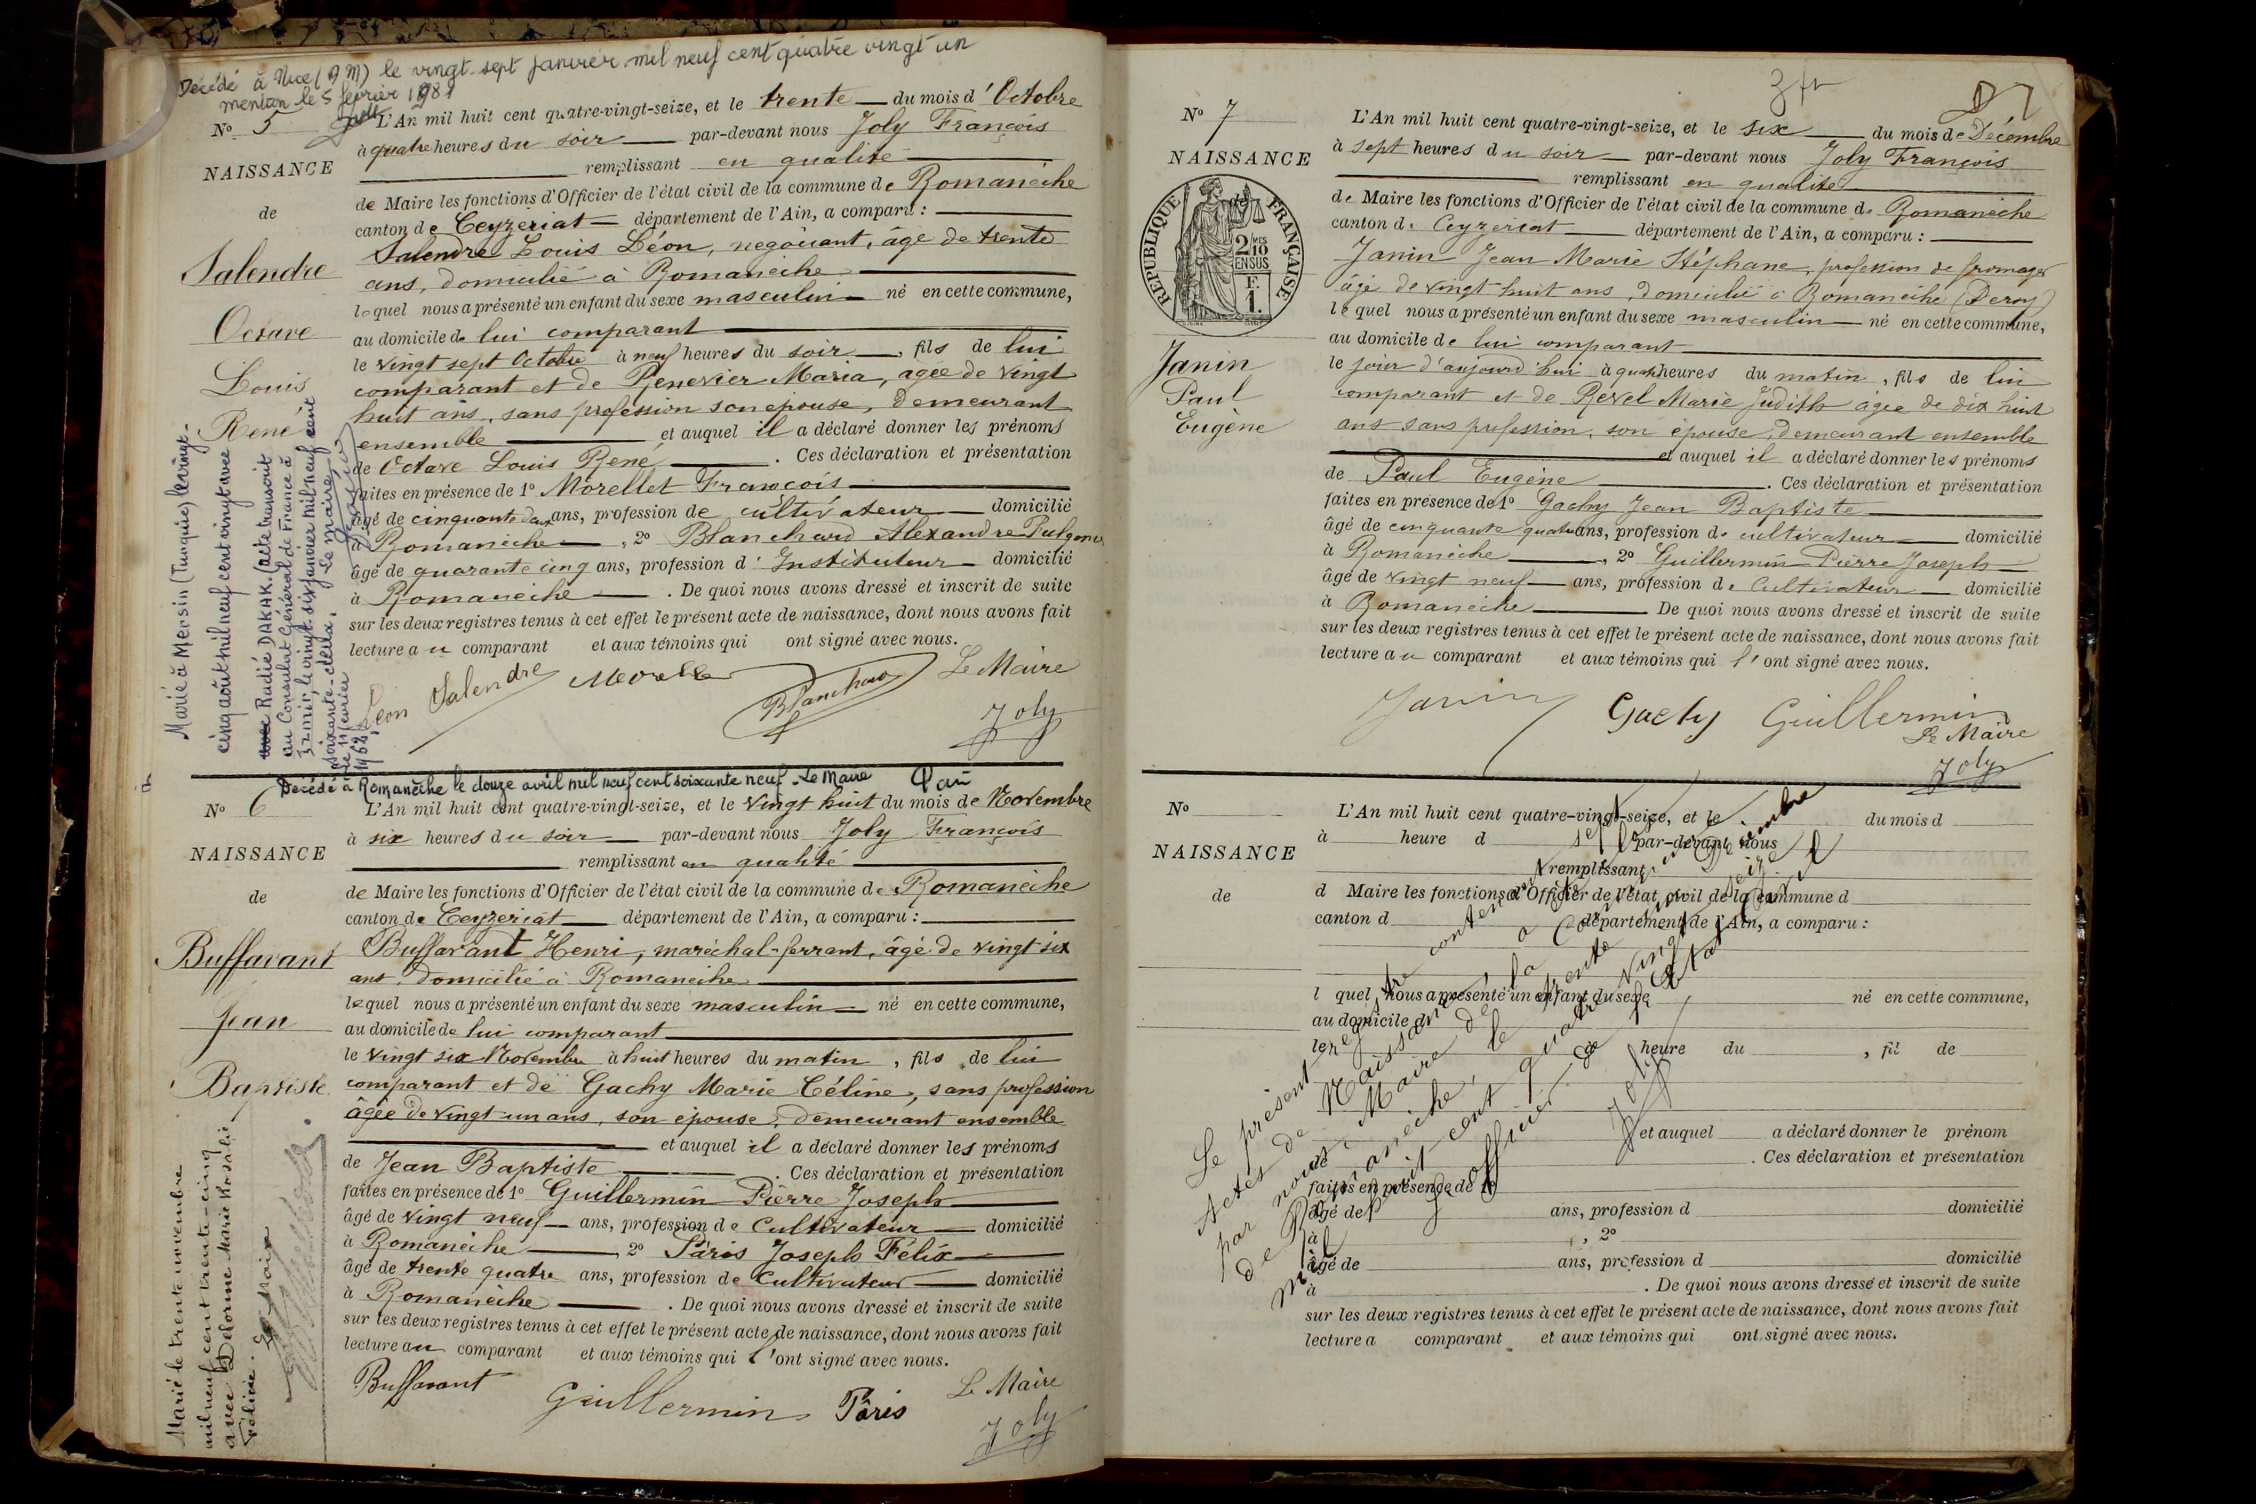 Décédé à Nice (A M) le vingt-sept janvier mil neuf cent quatre vingt un
mention le 5 février 1981
N° 5
NAISSANCE
de
Salendre
Octave
Louis
René
L'An mil huit cent quatre-vingt-seize, et le trente du mois d'Octobre
à quatre heures du soir par-devant nous Joly François
remplissant en qualité
de Maire les fonctions d'Officier de l'état civil de la commune de Romanèche
canton de Ceyzeriat département de l'Ain, a comparu :
Salendre Louis Léon, négociant, âgé de trente
ans, domicilié à Romanèche
lequel nous a présenté un enfant du sexe masculin né en cette commune,
au domicile de lui comparant
le vingt sept Octobre à neuf heures du soir, fils de lui
comparant et de Renevier Maria, agée de vingt
huit ans, sans profession son épouse, demeurant
ensemble et auquel il a déclaré donner les prénoms
de Octave Louis René. Ces déclaration et présentation
faites en présence de 1° Morellet François
âgé de cinquante deux ans, profession de cultivateur domicilié
à Romanèche, 2° Blanchard Alexandre
âgé de quarante cinq ans, profession d'Instituteur domicilié
à Romanèche. De quoi nous avons dressé et inscrit de suite
sur les deux registres tenus à cet effet le présent acte de naissance, dont nous avons fait
lecture au comparant et aux témoins qui ont signé avec nous.
Léon Salendre Blanchard Le Maire
Joly
Marié à Mersin (Turquie) le vingt-
cinq août mil neuf cent vingt avec
avec Radié DAKAK. (acte transcrit
au Consulat Général de France à
Izmir, le vingt-six janvier mil neuf cent
soixante-deux. Le maire,
le 11 février
1962
Décédé à Romanèche le douze avril mil neuf cent soixante neuf - Le Maire
N° 6
NAISSANCE
de
Buffavant
Jean
Baptiste
L'An mil huit cent quatre-vingt-seize, et le vingt huit du mois de Novembre
à six heures du soir par-devant nous Joly François
remplissant en qualité
de Maire les fonctions d'Officier de l'état civil de la commune de Romanèche
canton de Ceyzeriat département de l'Ain, a comparu :
Buffavant Henri, maréchal-ferrant, âgé de vingt six
ans, domicilié à Romanèche
lequel nous a présenté un enfant du sexe masculin né en cette commune,
au domicile de lui comparant
le vingt six Novembre à huit heures du matin, fils de lui
comparant et de Gachy Marie Céline, sans profession
âgée de vingt un ans, son épouse, demeurant ensemble
et auquel il a déclaré donner les prénoms
de Jean Baptiste. Ces déclaration et présentation
faites en présence de 1° Guillermin Pierre Joseph
âgé de vingt neuf ans, profession de cultivateur domicilié
à Romanèche, 2° Pâris Joseph Félix
âgé de trente quatre ans, profession de cultivateur domicilié
à Romanèche. De quoi nous avons dressé et inscrit de suite
sur les deux registres tenus à cet effet le présent acte de naissance, dont nous avons fait
lecture au comparant et aux témoins qui l'ont signé avec nous.
Buffavant Guillermin Pâris Le Maire
Joly
Marié le trente novembre
mil neuf cent trente-cinq
avec Delorme Marie Rosalie
Félicie.
Le Maire
N° 7
NAISSANCE
RÉPUBLIQUE FRANÇAISE
2/10 MES
EN SUS
F.
1.
Janin
Paul
Eugène
L'An mil huit cent quatre-vingt-seize, et le six du mois de Décembre
à sept heures du soir par-devant nous Joly François
remplissant en qualité
de Maire les fonctions d'Officier de l'état civil de la commune de Romanèche
canton de Ceyzeriat département de l'Ain, a comparu :
Janin Jean Marie Stéphane, profession de fromager
âgé de vingt huit ans, domicilié à Romanèche
lequel nous a présenté un enfant du sexe masculin né en cette commune,
au domicile de lui comparant
le jour d'aujourd'hui à quatre heures du matin, fils de lui
comparant et de Revel Marie Judith âgée de dix huit
ans sans profession, son épouse, demeurant ensemble
et auquel il a déclaré donner les prénoms
de Paul Eugène. Ces déclaration et présentation
faites en présence de 1° Gachy Jean Baptiste
âgé de cinquante quatre ans, profession de cultivateur domicilié
à Romanèche, 2° Guillermin Pierre Joseph
âgé de vingt neuf ans, profession de cultivateur domicilié
à Romanèche. De quoi nous avons dressé et inscrit de suite
sur les deux registres tenus à cet effet le présent acte de naissance, dont nous avons fait
lecture au comparant et aux témoins qui l'ont signé avec nous.
Janin Gachy Guillermin
Le Maire
Joly
N°
NAISSANCE
de
L'An mil huit cent quatre-vingt-seize, et le du mois d
à heure d par-devant nous
remplissant
d Maire les fonctions d'Officier de l'état civil de la commune d
canton d département de l'Ain, a comparu :
l quel nous a présenté un enfant du sexe né en cette commune,
au domicile d
le à heure du , fil de
et auquel a déclaré donner le prénom
de . Ces déclaration et présentation
faites en présence de 1°
âgé de ans, profession d domicilié
à , 2°
âgé de ans, profession d domicilié
à . De quoi nous avons dressé et inscrit de suite
sur les deux registres tenus à cet effet le présent acte de naissance, dont nous avons fait
lecture a comparant et aux témoins qui ont signé avec nous.
Le présent registre contenant sept
Actes de Naissance a été clos
par nous, Maire de la Commune
de Romanèche, le trente un Décembre
mil huit cent quatre vingt seize
L'officier de l'Etat Civil
Joly